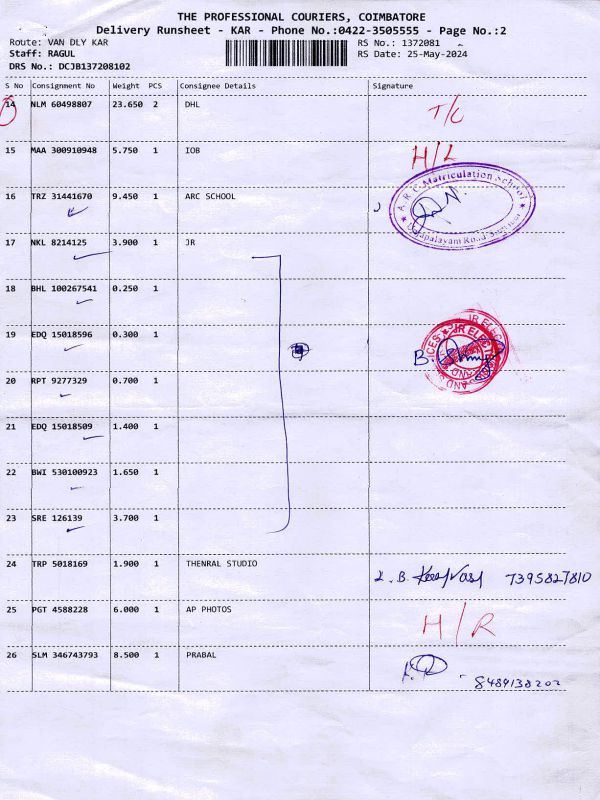 THE PROFESSIONAL COURIERS, COIMBATORE
Delivery Runsheet - KAR - Phone No.:0422-3505555 - Page No.:2
Route: VAN DLY KAR RS No.: 1372081
Staff: RAGUL RS Date: 25-May-2024
DRS No.: DCJB137208102
S No Consignment No Weight PCS Consignee Details Signature
14 NLM 60498807 23.650 2 DHL T/C
15 MAA 300910948 5.750 1 IOB H/L
16 TRZ 31441670 9.450 1 ARC SCHOOL
A.R.C Matriculation School
17 NKL 8214125 3.900 1 JR
18 BHL 100267541 0.250 1
19 EDQ 15018596 0.300 1
JR ELECT
B.
20 RPT 9277329 0.700 1
21 EDQ 15018509 1.400 1
22 BWI 530100923 1.650 1
23 SRE 126139 3.700 1
24 TRP 5018169 1.900 1 THENRAL STUDIO 7395827810
25 PGT 4588228 6.000 1 AP PHOTOS H/R
26 SLM 346743793 8.500 1 PRABAL 8489138202